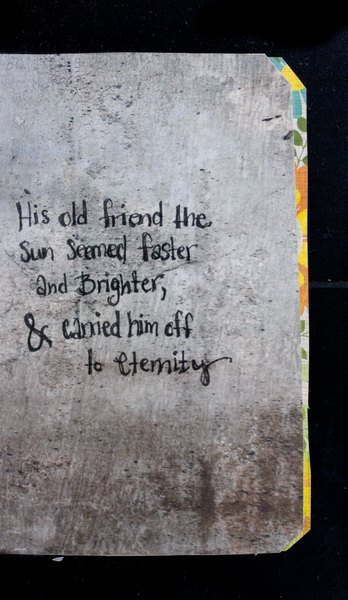 His old friend the
Sun Seemed faster
and Brighter,
& carried him off
to eternity